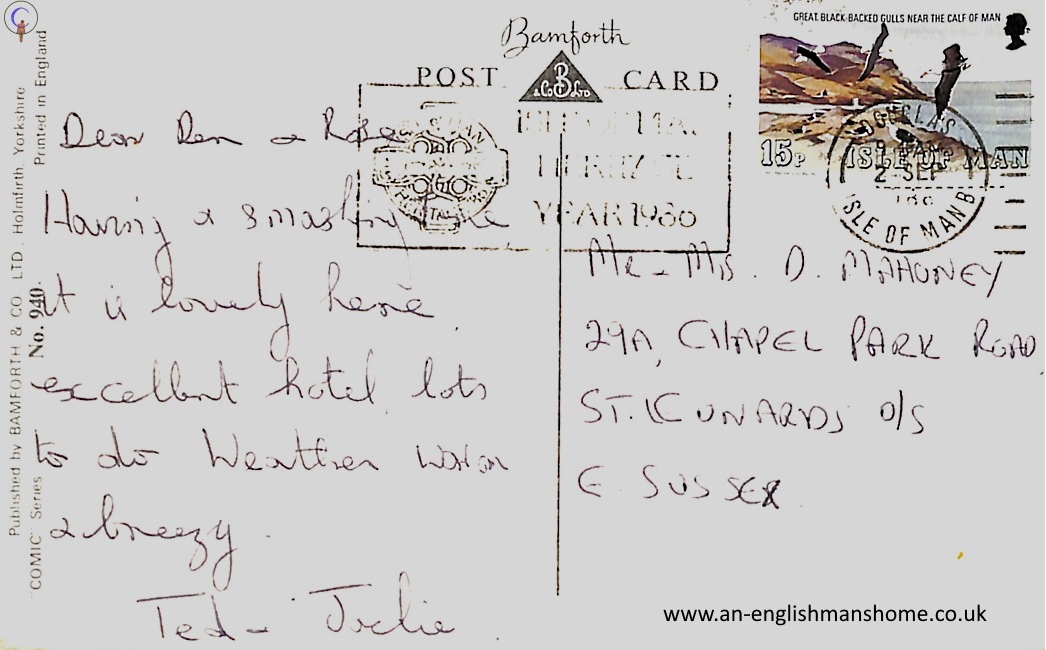 Bamforth
POST CARD
B
& Co Ltd
GREAT BLACK-BACKED GULLS NEAR THE CALF OF MAN
15P ISLE OF MAN
DOUGLAS
2 SEP
ISLE OF MAN B
HERITAGE
YEAR 1986
Published by BAMFORTH & CO LTD. Holmfirth Yorkshire
Printed in England
"COMIC" Series No. 940.
Dear Den & Rose
Having a smashing time
it is lovely here.
excellent hotel, lots
to do Weather warm
& breezy.
Ted & Julie.
Mr - Mrs. D. MAHONEY
29A, CHAPEL PARK ROAD,
ST. O/S
E. SUSSEX
www.an-englishmanshome.co.uk